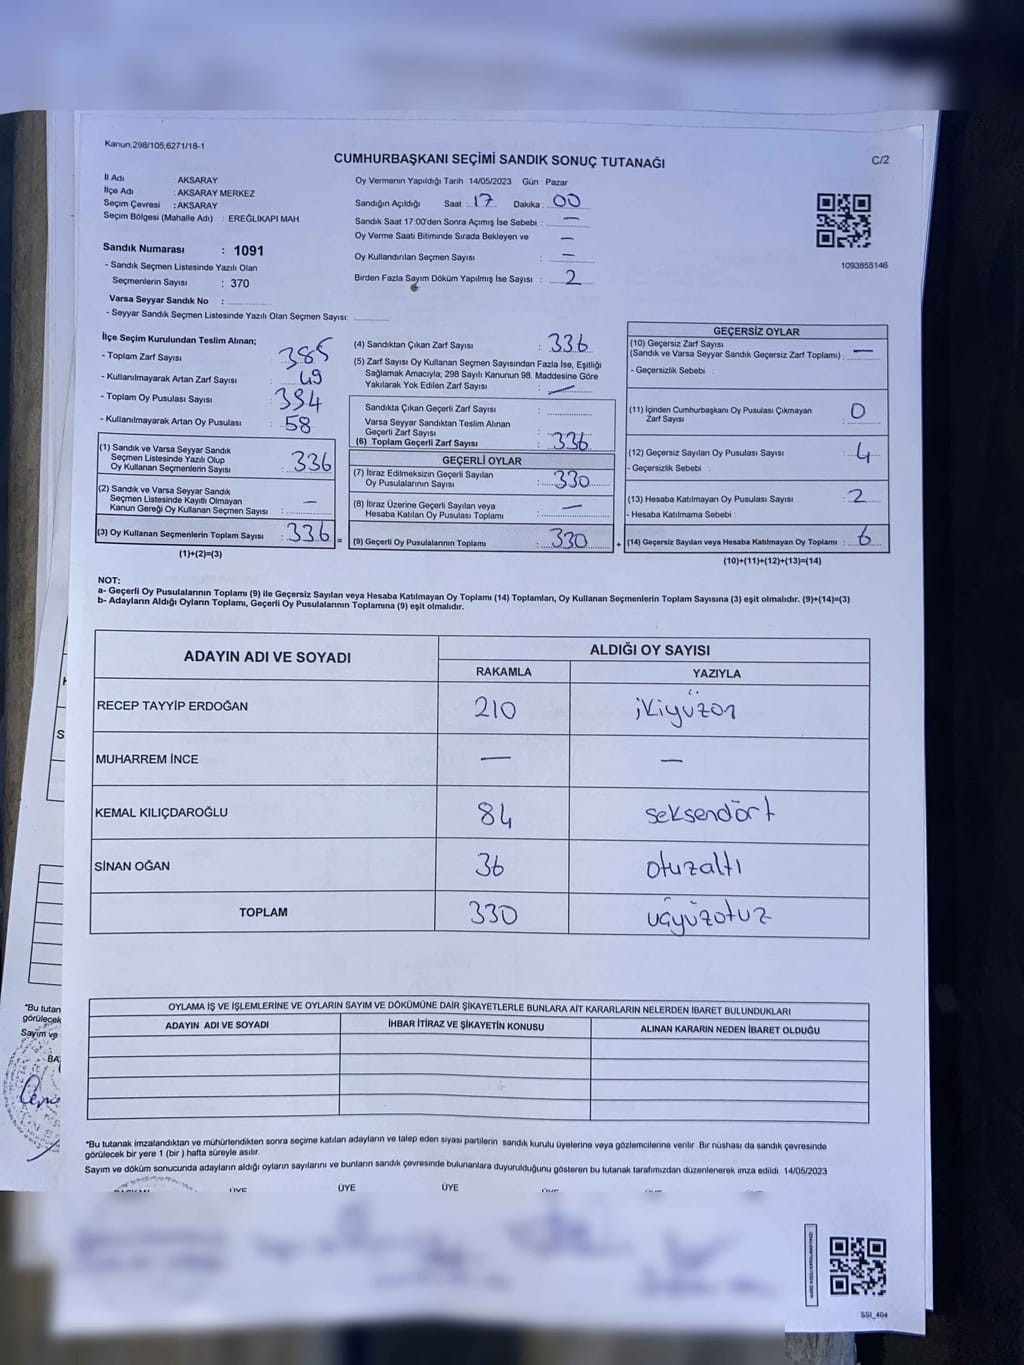 Kanun.298/105,6271/18-1
CUMHURBAŞKANI SEÇİMİ SANDIK SONUÇ TUTANAĞI
C/2
İl Adı : AKSARAY
İlçe Adı : AKSARAY MERKEZ
Seçim Çevresi : AKSARAY
Seçim Bölgesi (Mahalle Adı) : EREĞLİKAPI MAH
Sandık Numarası : 1091
- Sandık Seçmen Listesinde Yazılı Olan
Seçmenlerin Sayısı : 370
Varsa Seyyar Sandık No :
- Seyyar Sandık Seçmen Listesinde Yazılı Olan Seçmen Sayısı:
Oy Vermenin Yapıldığı Tarih 14/05/2023 Gün : Pazar
Sandığın Açıldığı Saat : 17 Dakika : 00
Sandık Saat 17:00'den Sonra Açımış İse Sebebi : —
Oy Verme Saati Bitiminde Sırada Bekleyen ve —
Oy Kullandırılan Seçmen Sayısı : —
Birden Fazla Sayım Döküm Yapılmış İse Sayısı : 2
1093855146
İlçe Seçim Kurulundan Teslim Alınan;
- Toplam Zarf Sayısı : 385
- Kullanılmayarak Artan Zarf Sayısı : 49
- Toplam Oy Pusulası Sayısı : 394
- Kullanılmayarak Artan Oy Pusulası : 58
(1) Sandık ve Varsa Seyyar Sandık
Seçmen Listesinde Yazılı Olup
Oy Kullanan Seçmenlerin Sayısı : 336
(2) Sandık ve Varsa Seyyar Sandık
Seçmen Listesinde Kayıtlı Olmayan
Kanun Gereği Oy Kullanan Seçmen Sayısı : —
(3) Oy Kullanan Seçmenlerin Toplam Sayısı : 336 =
(1)+(2)=(3)
(4) Sandıktan Çıkan Zarf Sayısı : 336
(5) Zarf Sayısı Oy Kullanan Seçmen Sayısından Fazla İse, Eşitliği
Sağlamak Amacıyla; 298 Sayılı Kanunun 98. Maddesine Göre
Yakılarak Yok Edilen Zarf Sayısı : —
Sandıkta Çıkan Geçerli Zarf Sayısı :
Varsa Seyyar Sandıktan Teslim Alınan
Geçerli Zarf Sayısı :
(6) Toplam Geçerli Zarf Sayısı : 336
GEÇERLİ OYLAR
(7) İtiraz Edilmeksizin Geçerli Sayılan
Oy Pusulalarının Sayısı : 330
(8) İtiraz Üzerine Geçerli Sayılan veya
Hesaba Katılan Oy Pusulası Toplamı : —
(9) Geçerli Oy Pusulalarının Toplamı : 330 +
GEÇERSİZ OYLAR
(10) Geçersiz Zarf Sayısı
(Sandık ve Varsa Seyyar Sandık Geçersiz Zarf Toplamı) : —
- Geçersizlik Sebebi :
(11) İçinden Cumhurbaşkanı Oy Pusulası Çıkmayan
Zarf Sayısı : 0
(12) Geçersiz Sayılan Oy Pusulası Sayısı : 4
- Geçersizlik Sebebi :
(13) Hesaba Katılmayan Oy Pusulası Sayısı : 2
- Hesaba Katılmama Sebebi :
(14) Geçersiz Sayılan veya Hesaba Katılmayan Oy Toplamı : 6
(10)+(11)+(12)+(13)=(14)
NOT:
a- Geçerli Oy Pusulalarının Toplamı (9) ile Geçersiz Sayılan veya Hesaba Katılmayan Oy Toplamı (14) Toplamları, Oy Kullanan Seçmenlerin Toplam Sayısına (3) eşit olmalıdır. (9)+(14)=(3)
b- Adayların Aldığı Oyların Toplamı, Geçerli Oy Pusulalarının Toplamına (9) eşit olmalıdır.
ADAYIN ADI VE SOYADI
ALDIĞI OY SAYISI
RAKAMLA YAZIYLA
RECEP TAYYİP ERDOĞAN 210 ikiyüzon
MUHARREM İNCE — —
KEMAL KILIÇDAROĞLU 84 seksendört
SİNAN OĞAN 36 otuzaltı
TOPLAM 330 üçyüzotuz
OYLAMA İŞ VE İŞLEMLERİNE VE OYLARIN SAYIM VE DÖKÜMÜNE DAİR ŞİKAYETLERLE BUNLARA AİT KARARLARIN NELERDEN İBARET BULUNDUKLARI
ADAYIN ADI VE SOYADI İHBAR İTİRAZ VE ŞİKAYETİN KONUSU ALINAN KARARIN NEDEN İBARET OLDUĞU
*Bu tutanak imzalandıktan ve mühürlendikten sonra seçime katılan adayların ve talep eden siyasi partilerin sandık kurulu üyelerine veya gözlemcilerine verilir. Bir nüshası da sandık çevresinde
görülecek bir yere 1 (bir ) hafta süreyle asılır.
Sayım ve döküm sonucunda adayların aldığı oyların sayılarını ve bunların sandık çevresinde bulunanlara duyurulduğunu gösteren bu tutanak tarafımızdan düzenlenerek imza edildi. 14/05/2023
BAŞKAN ÜYE ÜYE ÜYE
*Bu tutan
görülecek
Sayım ve
BA
SSI_404